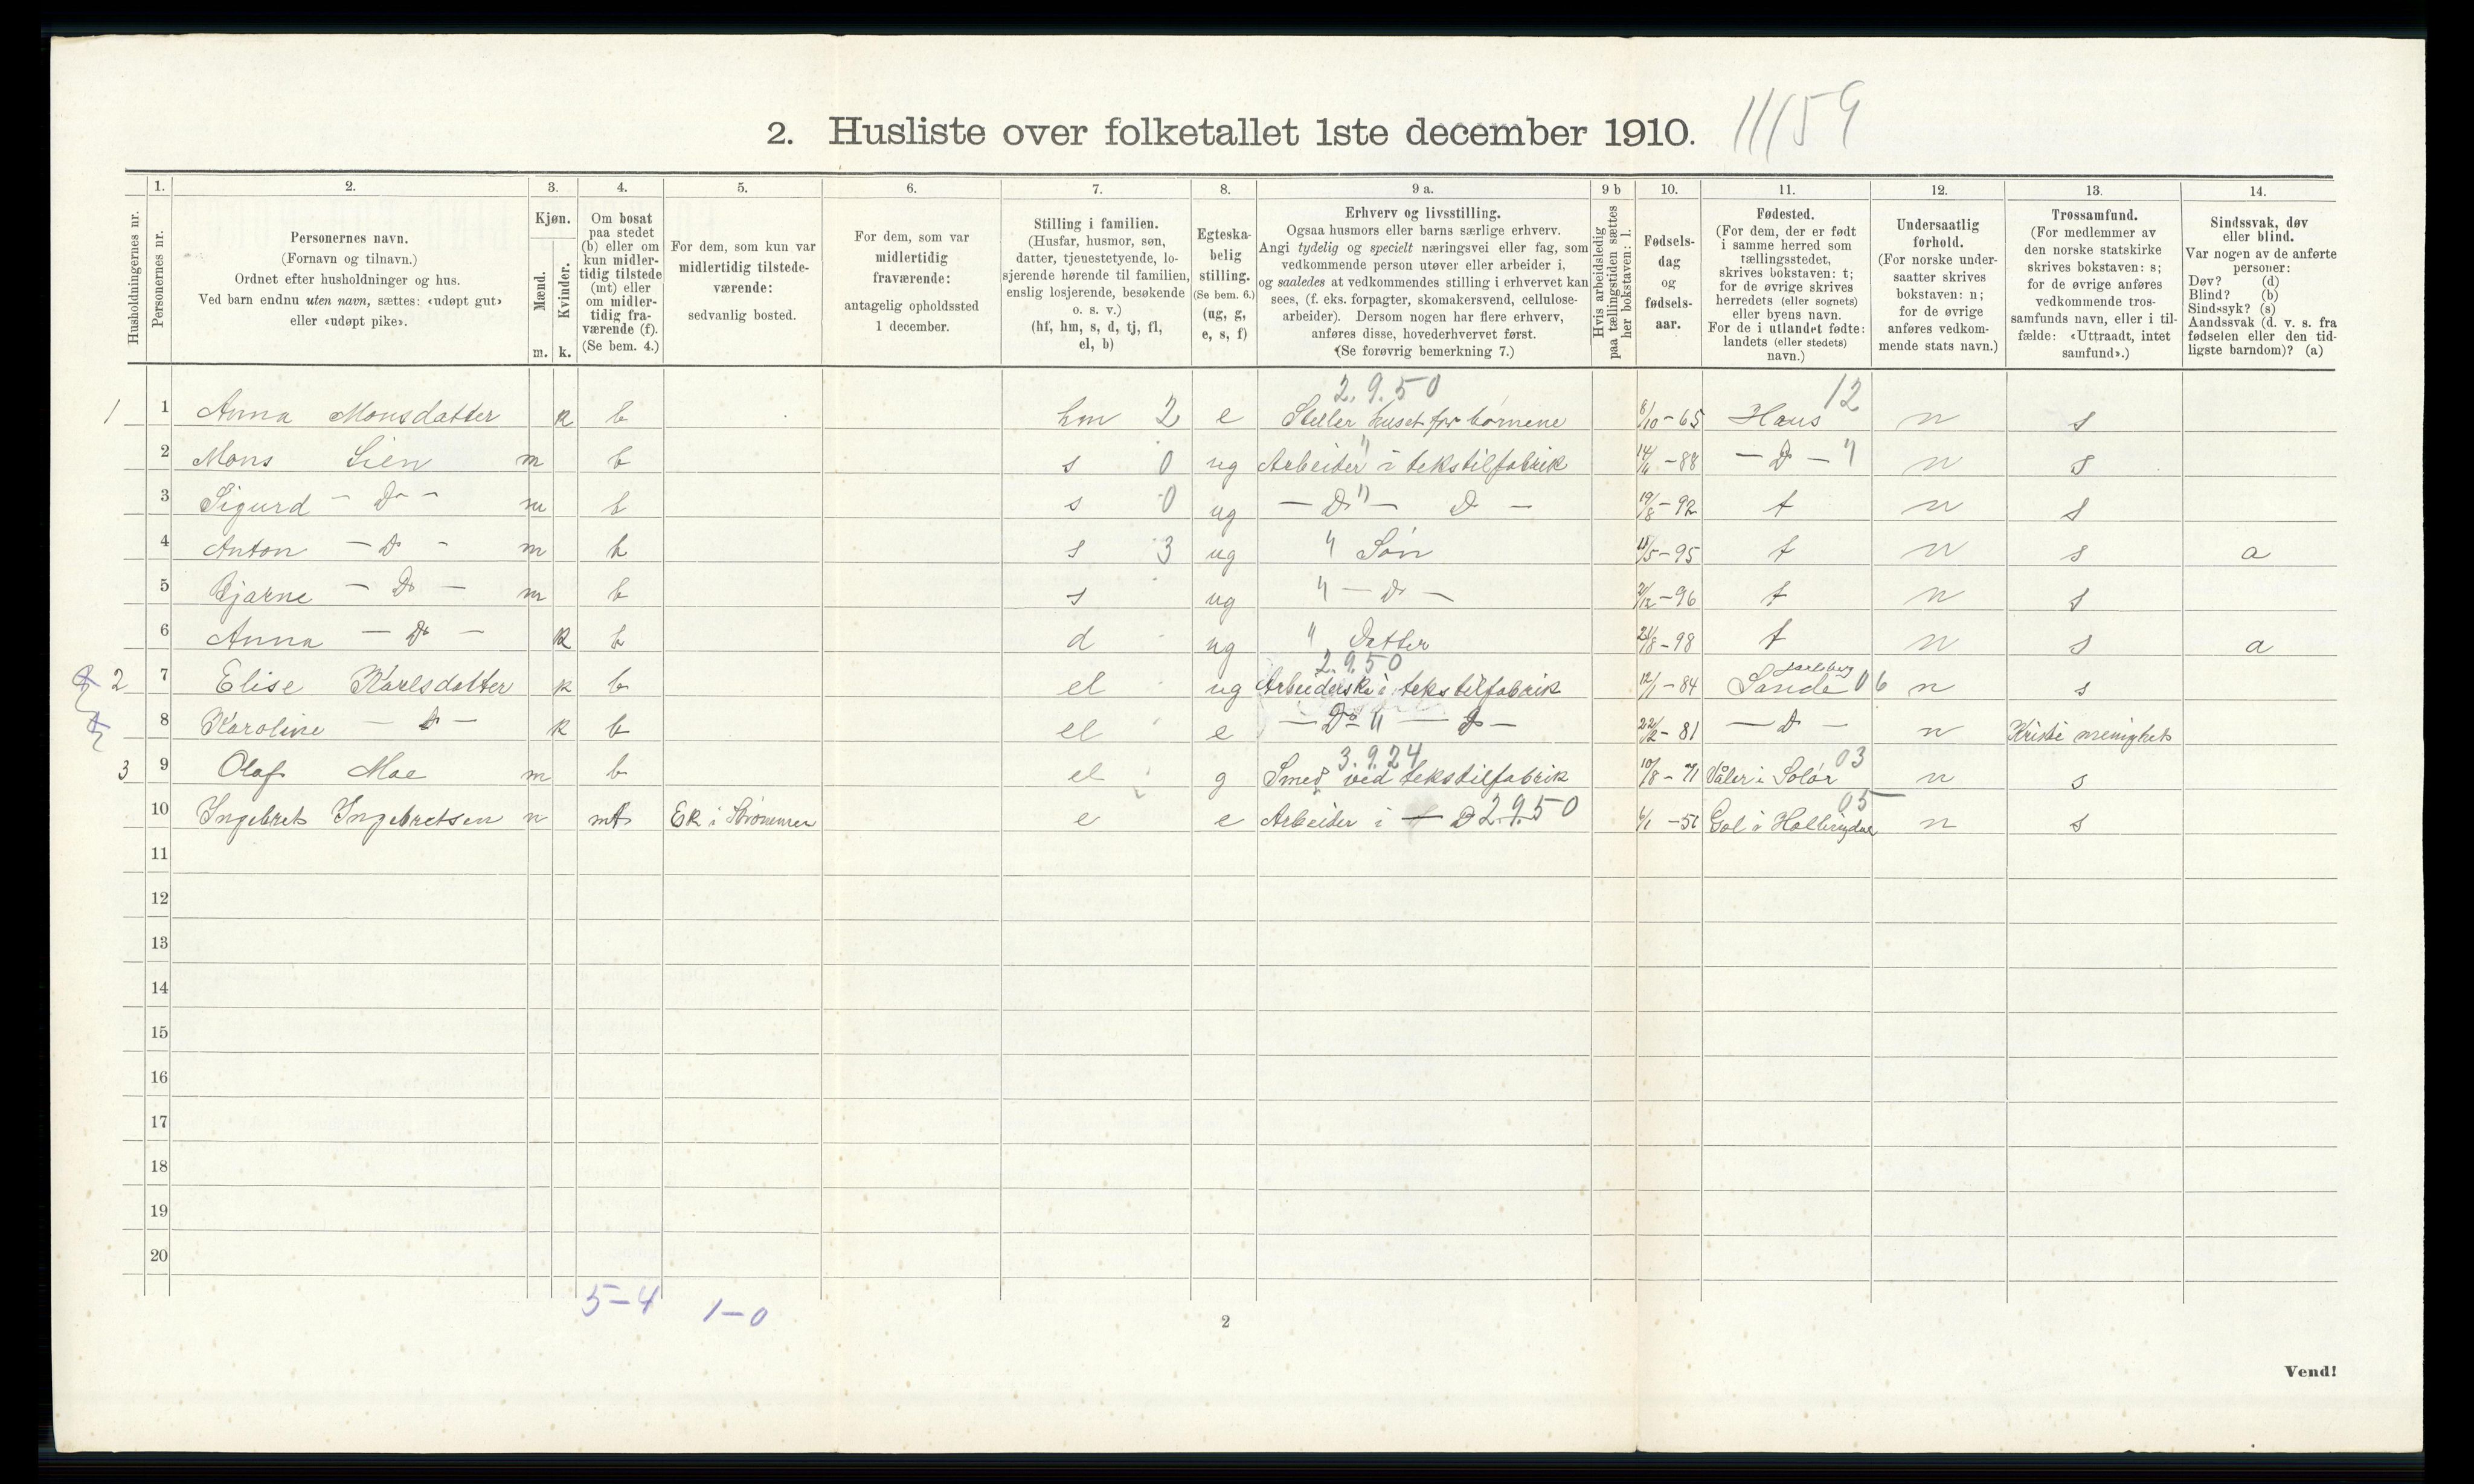 2. Husliste over folketallet 1ste december 1910. 11/59
1. 2. 3. 4. 5. 6. 7. 8. 9 a. 9 b 10. 11. 12. 13. 14.
Husholdningernes nr.
Personernes nr.
Personernes navn.
(Fornavn og tilnavn.)
Ordnet efter husholdninger og hus.
Ved barn endnu uten navn, sættes: «udøpt gut»
eller «udøpt pike».
Kjøn.
Mænd.
Kvinder.
m. k.
Om bosat
paa stedet
(b) eller om
kun midler-
tidig tilstede
(mt) eller
om midler-
tidig fra-
værende (f).
(Se bem. 4.)
For dem, som kun var
midlertidig tilstede-
værende:
sedvanlig bosted.
For dem, som var
midlertidig
fraværende:
antagelig opholdssted
1 december.
Stilling i familien.
(Husfar, husmor, søn,
datter, tjenestetyende, lo-
sjerende hørende til familien,
enslig losjerende, besøkende
o. s. v.)
(hf, hm, s, d, tj, fl,
el, b)
Egteska-
belig
stilling.
(Se bem. 6.)
(ug, g,
e, s, f)
Erhverv og livsstilling.
Ogsaa husmors eller barns særlige erhverv.
Angi tydelig og specielt næringsvei eller fag, som
vedkommende person utøver eller arbeider i,
og saaledes at vedkommendes stilling i erhvervet kan
sees, (f. eks. forpagter, skomakersvend, cellulose-
arbeider). Dersom nogen har flere erhverv,
anføres disse, hovederhvervet først.
(Se forøvrig bemerkning 7.)
Hvis arbeidsledig
paa tællingstiden sættes
her bokstaven: l.
Fødsels-
dag
og
fødsels-
aar.
Fødested.
(For dem, der er født
i samme herred som
tællingsstedet,
skrives bokstaven: t;
for de øvrige skrives
herredets (eller sognets)
eller byens navn.
For de i utlandet fødte:
landets (eller stedets)
navn.)
Undersaatlig
forhold.
(For norske under-
saatter skrives
bokstaven: n;
for de øvrige
anføres vedkom-
mende stats navn.)
Trossamfund.
(For medlemmer av
den norske statskirke
skrives bokstaven: s;
for de øvrige anføres
vedkommende tros-
samfunds navn, eller i til-
fælde: «Uttraadt, intet
samfund».)
Sindssvak, døv
eller blind.
Var nogen av de anførte
personer:
Døv? (d)
Blind? (b)
Sindssyk? (s)
Aandssvak (d. v. s. fra
fødselen eller den tid-
ligste barndom)? (a)
2.9.50 12
1 1 Anna Monsdatter k b hm 2 e Steller huset for børnene 8/10-65 Haus n s
2 Mons Lien m b s 0 ug Arbeider i tekstilfabrik -88 — D — " n s
3 Sigurd - Do - m b s 0 ug — Do " — D — 19/8-92 t n s
4 Anton - Do - m b s 3 ug " Søn -95 t n s a
5 Bjarne - Do - m b s ug " — Do — -96 t n s
6 Anna - Do - k b d ug " Datter -98 t n s a
2.9.50 Jarlsberg
2 7 Elise Karlsdatter k b el ug Arbeiderske i tekstilfabrik 12/1-84 Sande 06 n s
8 Karoline - D - k b el e — Do " — Do — -81 — D — n Kristi menighet
3.9.24 03
3 9 Olaf Moe m b el g Smed ved tekstilfabrik 10/8-71 Våler i Solør n s
10 Ingebret Ingebretsen m mt Ek i Strømmen e e Arbeider i — D 2.9.50 Gol i Hallingdal 05 n s
11
12
13
14
15
16
17
18
19
20
5-4 1-0
2
Vend!